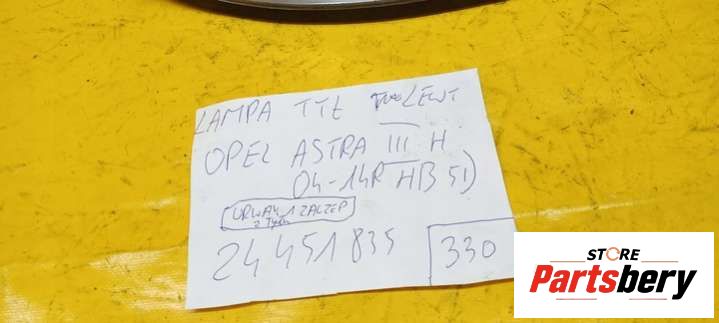 LAMPA TYŁ LEWY
OPEL ASTRA III H
04-14R HB 5D
URWANY 1 ZACZEP
Z TYŁU
24451835
330
STORE
Partsbery